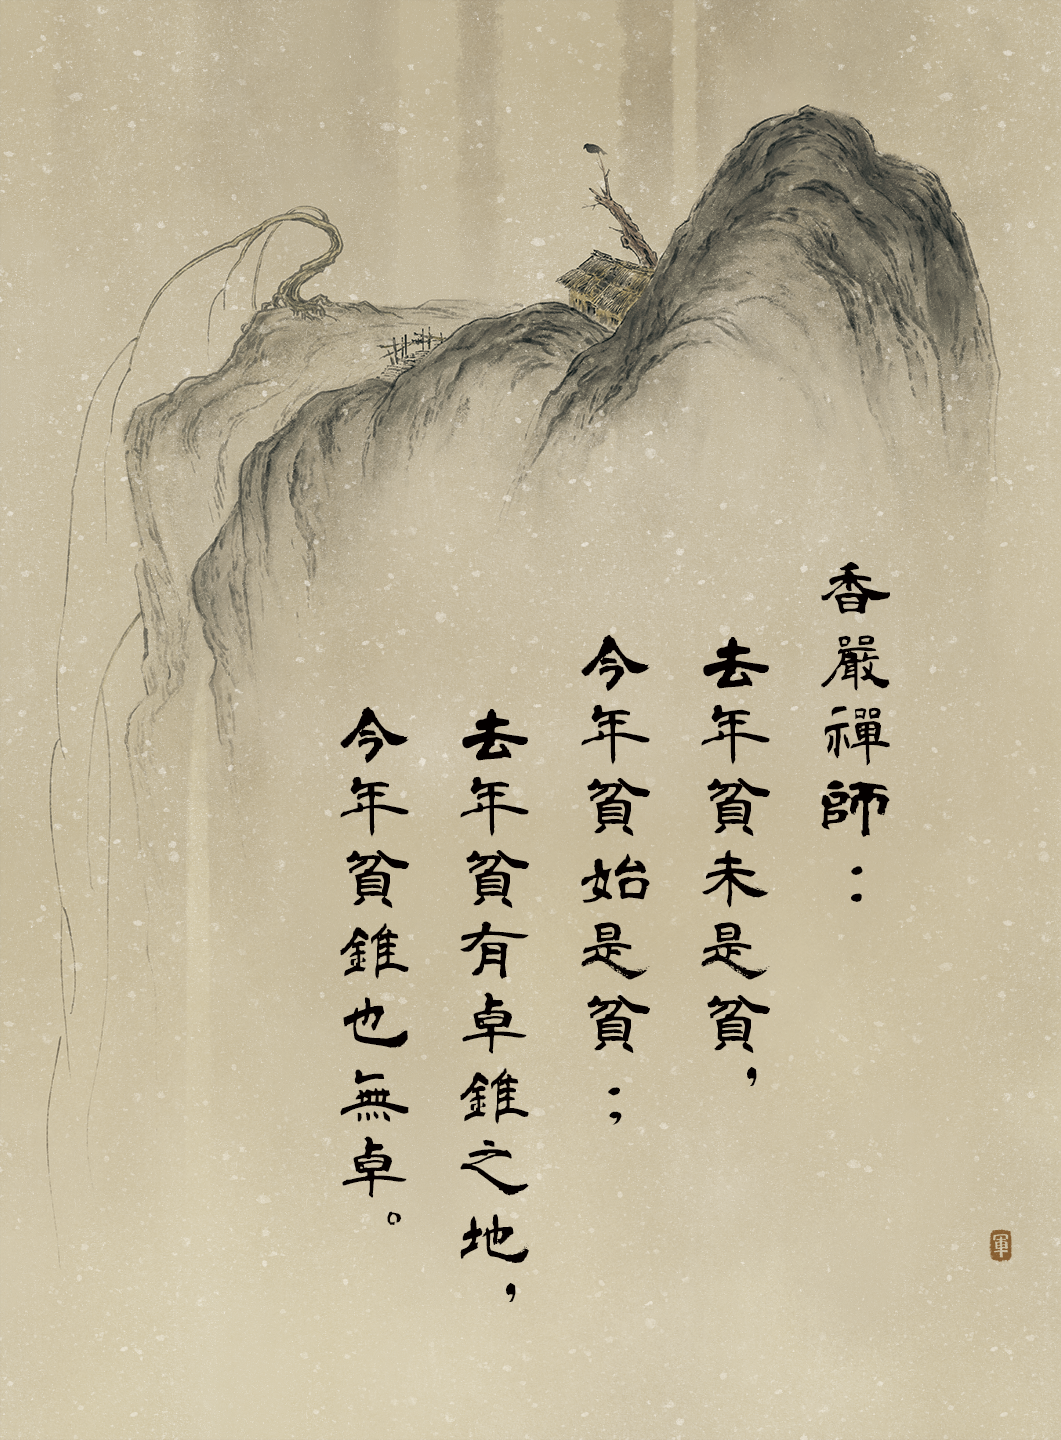 香嚴禪師：
去年貧未是貧，
今年貧始是貧；
去年貧有卓錐之地，
今年貧錐也無卓。
軍